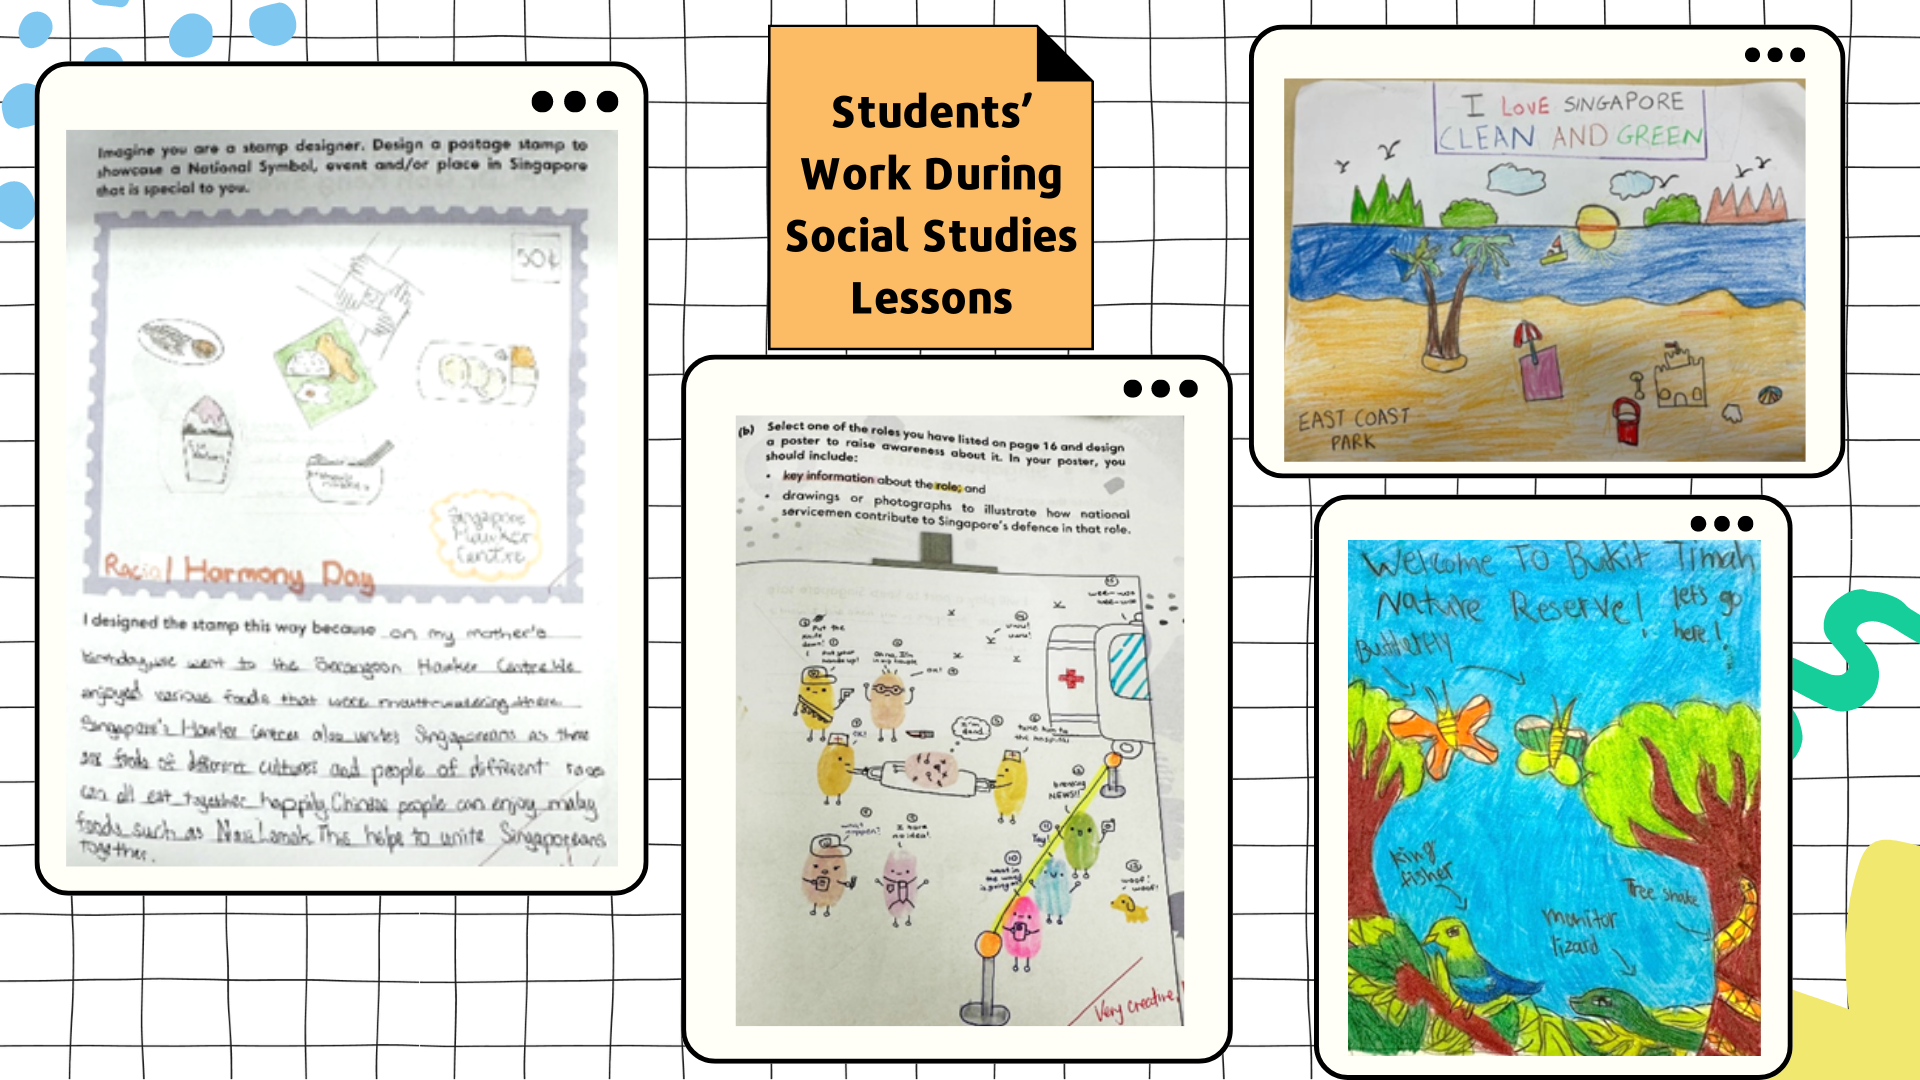 Students’
Work During
Social Studies
Lessons
Imagine you are a stamp designer. Design a postage stamp to
showcase a National Symbol, event and/or place in Singapore
that is special to you.
50¢
Ice
Singapore
Hawker
Centre
Racial Harmony Day
I designed the stamp this way because on my mother's
birthday, we went to the Serangoon Hawker Centre. We
enjoyed various foods that were mouthwatering there.
Singapore's Hawker Centres also unites Singaporeans as there
are foods of different cultures and people of different races
can all eat together happily. Chinese people can enjoy malay
foods such as Nasi Lemak. This helps to unite Singaporeans
together.
(b) Select one of the roles you have listed on page 16 and design
a poster to raise awareness about it. In your poster, you
should include:
• key information about the role; and
• drawings or photographs to illustrate how national
servicemen contribute to Singapore's defence in that role.
15
wee-woo
wee-woo
Put the
knife
down!
Put your
hands up!
Oh no, I'm
in my house
OK!
OK!
I'm
dead
take him to
the hospital
what
happen?
I have
no idea!
breaking
NEWS!!
11
Yay!
10
what in
the world
is going on
13
woof!
woof!
Very creative!
I LOVE SINGAPORE
CLEAN AND GREEN
EAST COAST
PARK
Welcome To Bukit Timah
Nature Reserve!
let's go
here!
Butterfly
king
fisher
Tree snake
monitor
lizard